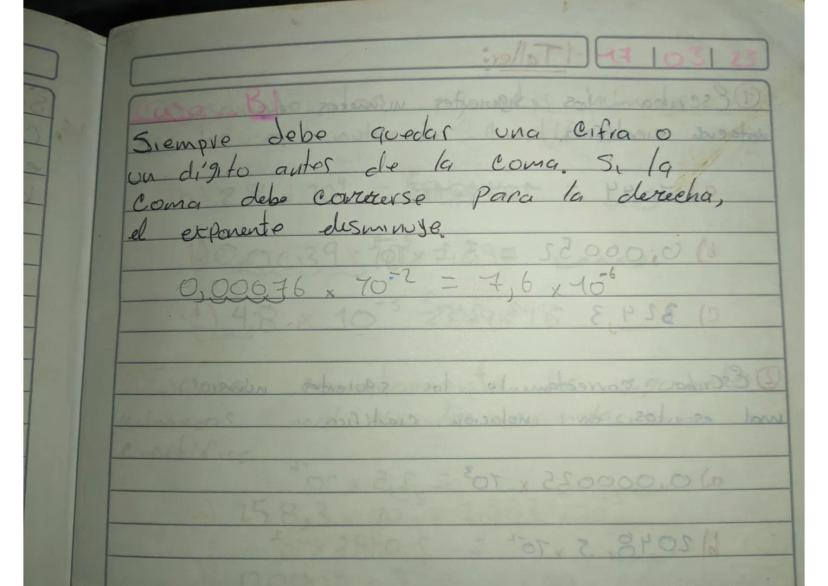 17 | 03 | 23
Siempre debe quedar una cifra o
un dígito antes de la coma. Si la
coma debe correrse para la derecha,
el exponente desminuye.
0,00076 x 10⁻² = 7,6 x 10⁻⁶